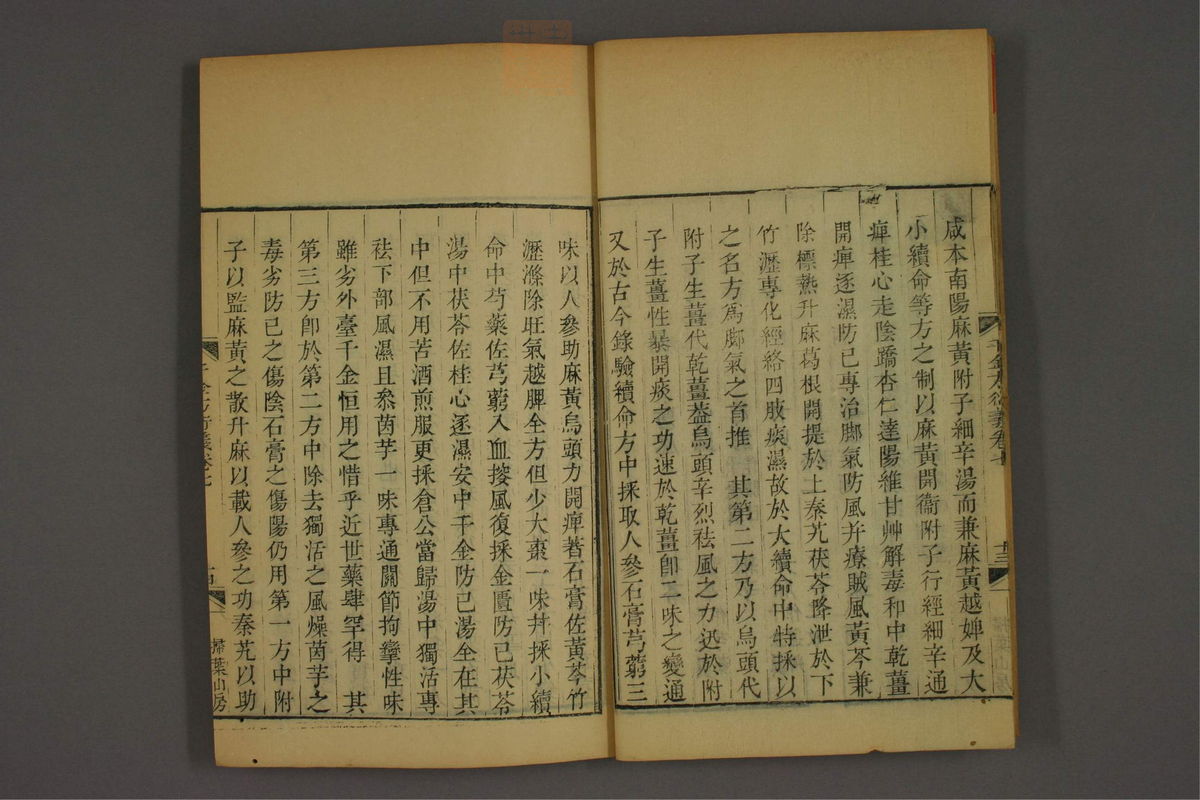 千金方衍義卷七
十三
咸本南陽麻黃附子細辛湯而兼麻黃越婢及大
小續命等方之制以麻黃開衞附子行經細辛通
痺桂心走陰蹻杏仁達陽維甘艸解毒和中乾薑
開痺逐濕防已專治腳氣防風幷療賊風黃芩兼
除標熱升麻葛根開提於上秦艽茯苓降泄於下
竹瀝專化經絡四肢痰濕故於大續命中特採以
之名方爲腳氣之首推 其第二方乃以烏頭代
附子生薑代乾薑葢烏頭辛烈祛風之力迅於附
子生薑性暴開痰之功速於乾薑卽二味之變通
又於古今錄驗續命方中採取人參石膏芎藭三
味以人參助麻黃烏頭力開痺著石膏佐黃芩竹
瀝滌除旺氣越脾全方但少大棗一味幷採小續
命中芍藥佐芎藭入血搜風復採金匱防已茯苓
湯中茯苓佐桂心逐濕安中千金防已湯全在其
中但不用苦酒煎服更採倉公當歸湯中獨活專
祛下部風濕且叅茵芋一味專通關節拘攣性味
雖劣外臺千金恒用之惜乎近世藥肆罕得 其
第三方卽於第二方中除去獨活之風燥茵芋之
毒劣防已之傷陰石膏之傷陽仍用第一方中附
子以監麻黃之散升麻以載人參之功秦艽以助
千金方衍義卷七
十四
掃葉山房